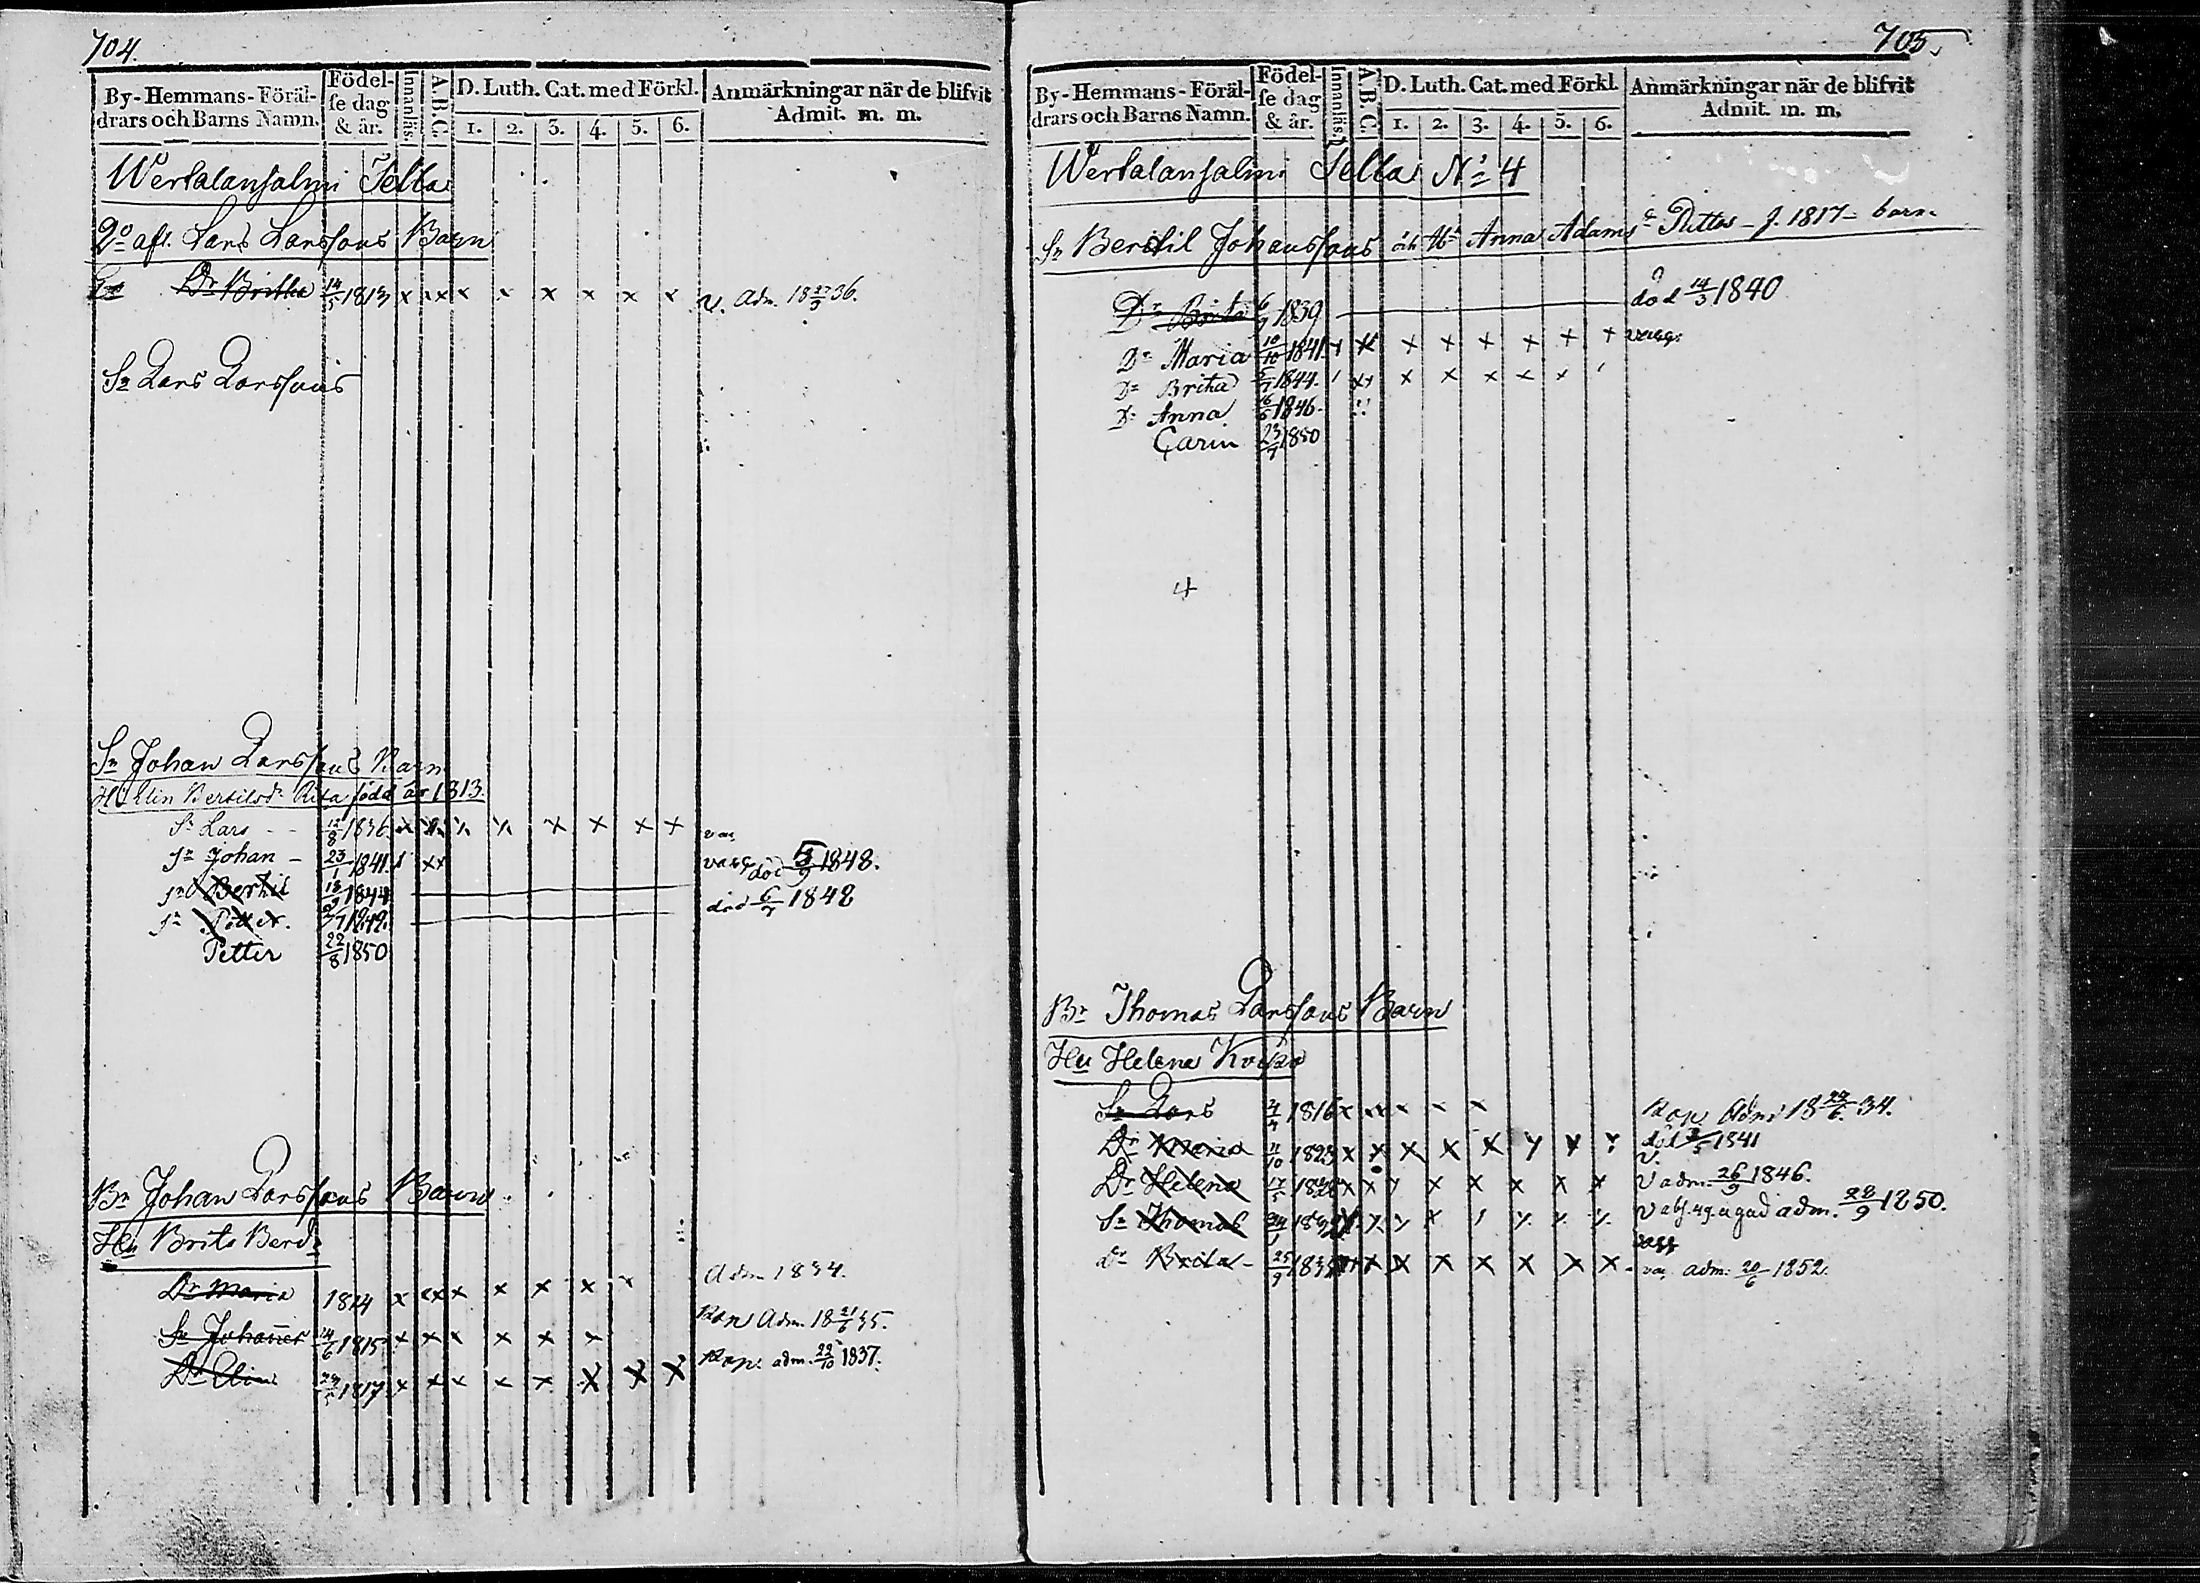 704.
By-Hemmans-Föräl-
drars och Barns Namn.
Födel-
se dag
& år.
Innanläs.
A.B.C.
D. Luth. Cat. med Förkl.
1. 2. 3. 4. 5. 6.
Anmärkningar när de blifvit
Admit. m. m.
Wertalansalmi Sella
2o afl. Lars Larssons Barn
Dr Britha 14/5 1813 x xx x x x x x x v. Adm. 18 27/3 36.
Sn Lars Larssons
Sn Johan Larssons Barn
Hu Elin Bertilsdr Rita född år 1813.
Sn Lars - - 12/8 1836 x x x x x x
Sn Johan - 23/1 1841 xx
Sn Bertil 18/9 1844 död 5/9 1848.
Sn Petter. död 6/7 1842
Petter 22/8 1850
Br Johan Larssons Barn
Hu Brita Berdr
Dr Maria 1814 x xx x x x x x Adm 1834.
Sn Johannes 24/6 1815 x x x x x x x Kop Adm. 18 21/6 35.
Dr Elin 1817 x x x x x x x x Kop. adm. 22/10 1837.
705.
By-Hemmans-Föräl-
drars och Barns Namn.
Födel-
se dag
& år.
Innanläs.
A.B.C.
D. Luth. Cat. med Förkl.
1. 2. 3. 4. 5. 6.
Anmärkningar när de blifvit
Admit. m. m.
Wertalansalmi Sella No 4
Sn Bertil Johanssons och Hu Anna Adamsdr f. 1817 barn
Dr Brita 6/9 1839 död 14/3 1840
Dr Maria 10/10 1841 x x x x x x x
Dr Brita 1844. xx x x x x x
Dr Anna 16/6 1846.
Carin 23/7 1850
4
Br Thomas Larssons Barn
Hu Helena
Sn Lars 1816 x xx x x x Kop Adm 18 22/6 34.
Dr Maria 11/10 1823 x x x x x x x död 1841
v.
Dr Helena 17/5 x x x x x x x x v adm. 26/9 1846.
Sn Thomas adm. 28/9 1850.
Dr Brita - 25/9 x x x x x x adm. 20/6 1852.